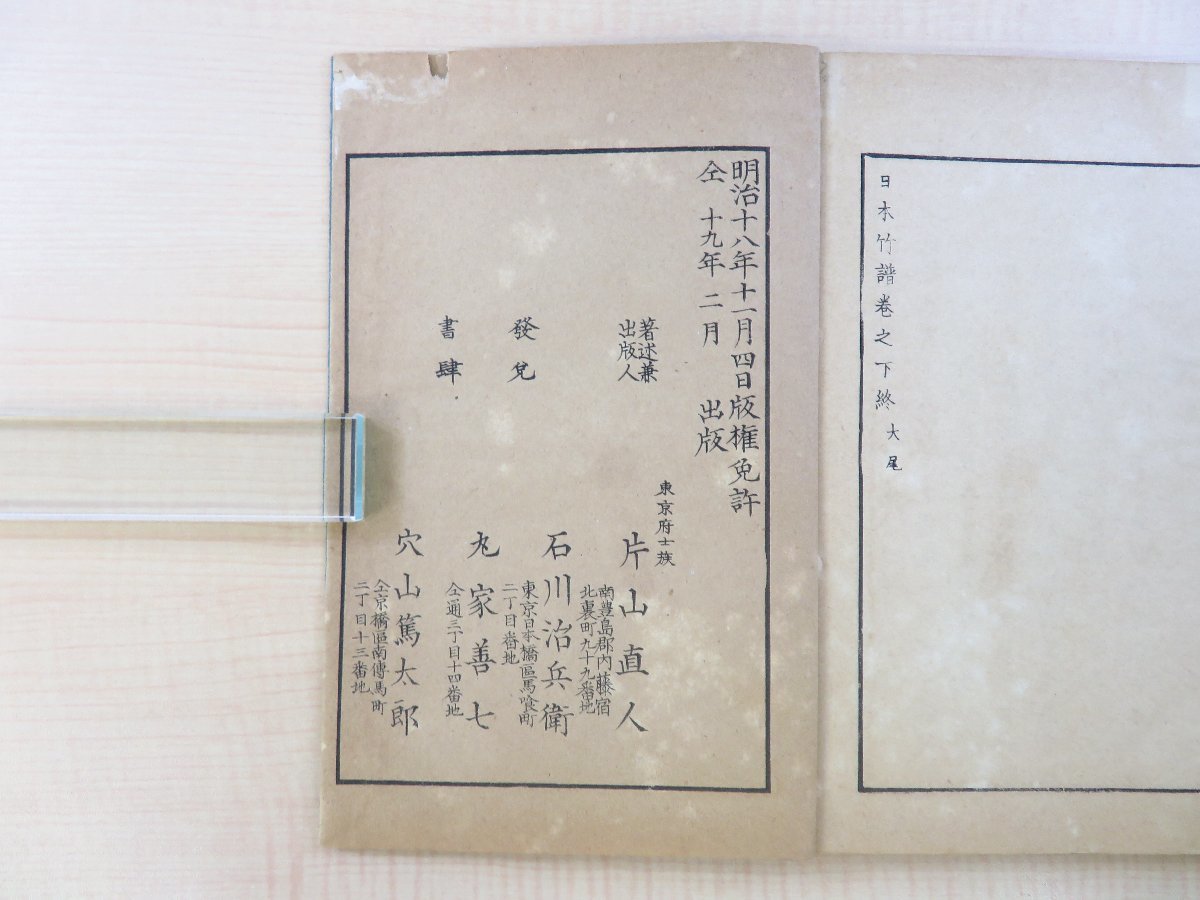 日本竹譜卷之下終 大尾
明治十八年十一月四日版権免許
仝 十九年 二月 出版
著述兼
出版人
東京府士族
片山直人
南豊島郡内藤宿
北裏町九十九番地
發兌
石川治兵衛
東京日本橋區馬喰町
二丁目番地
丸家善七
仝通三丁目十四番地
書肆
穴山篤太郎
仝京橋區南傳馬町
二丁目十三番地